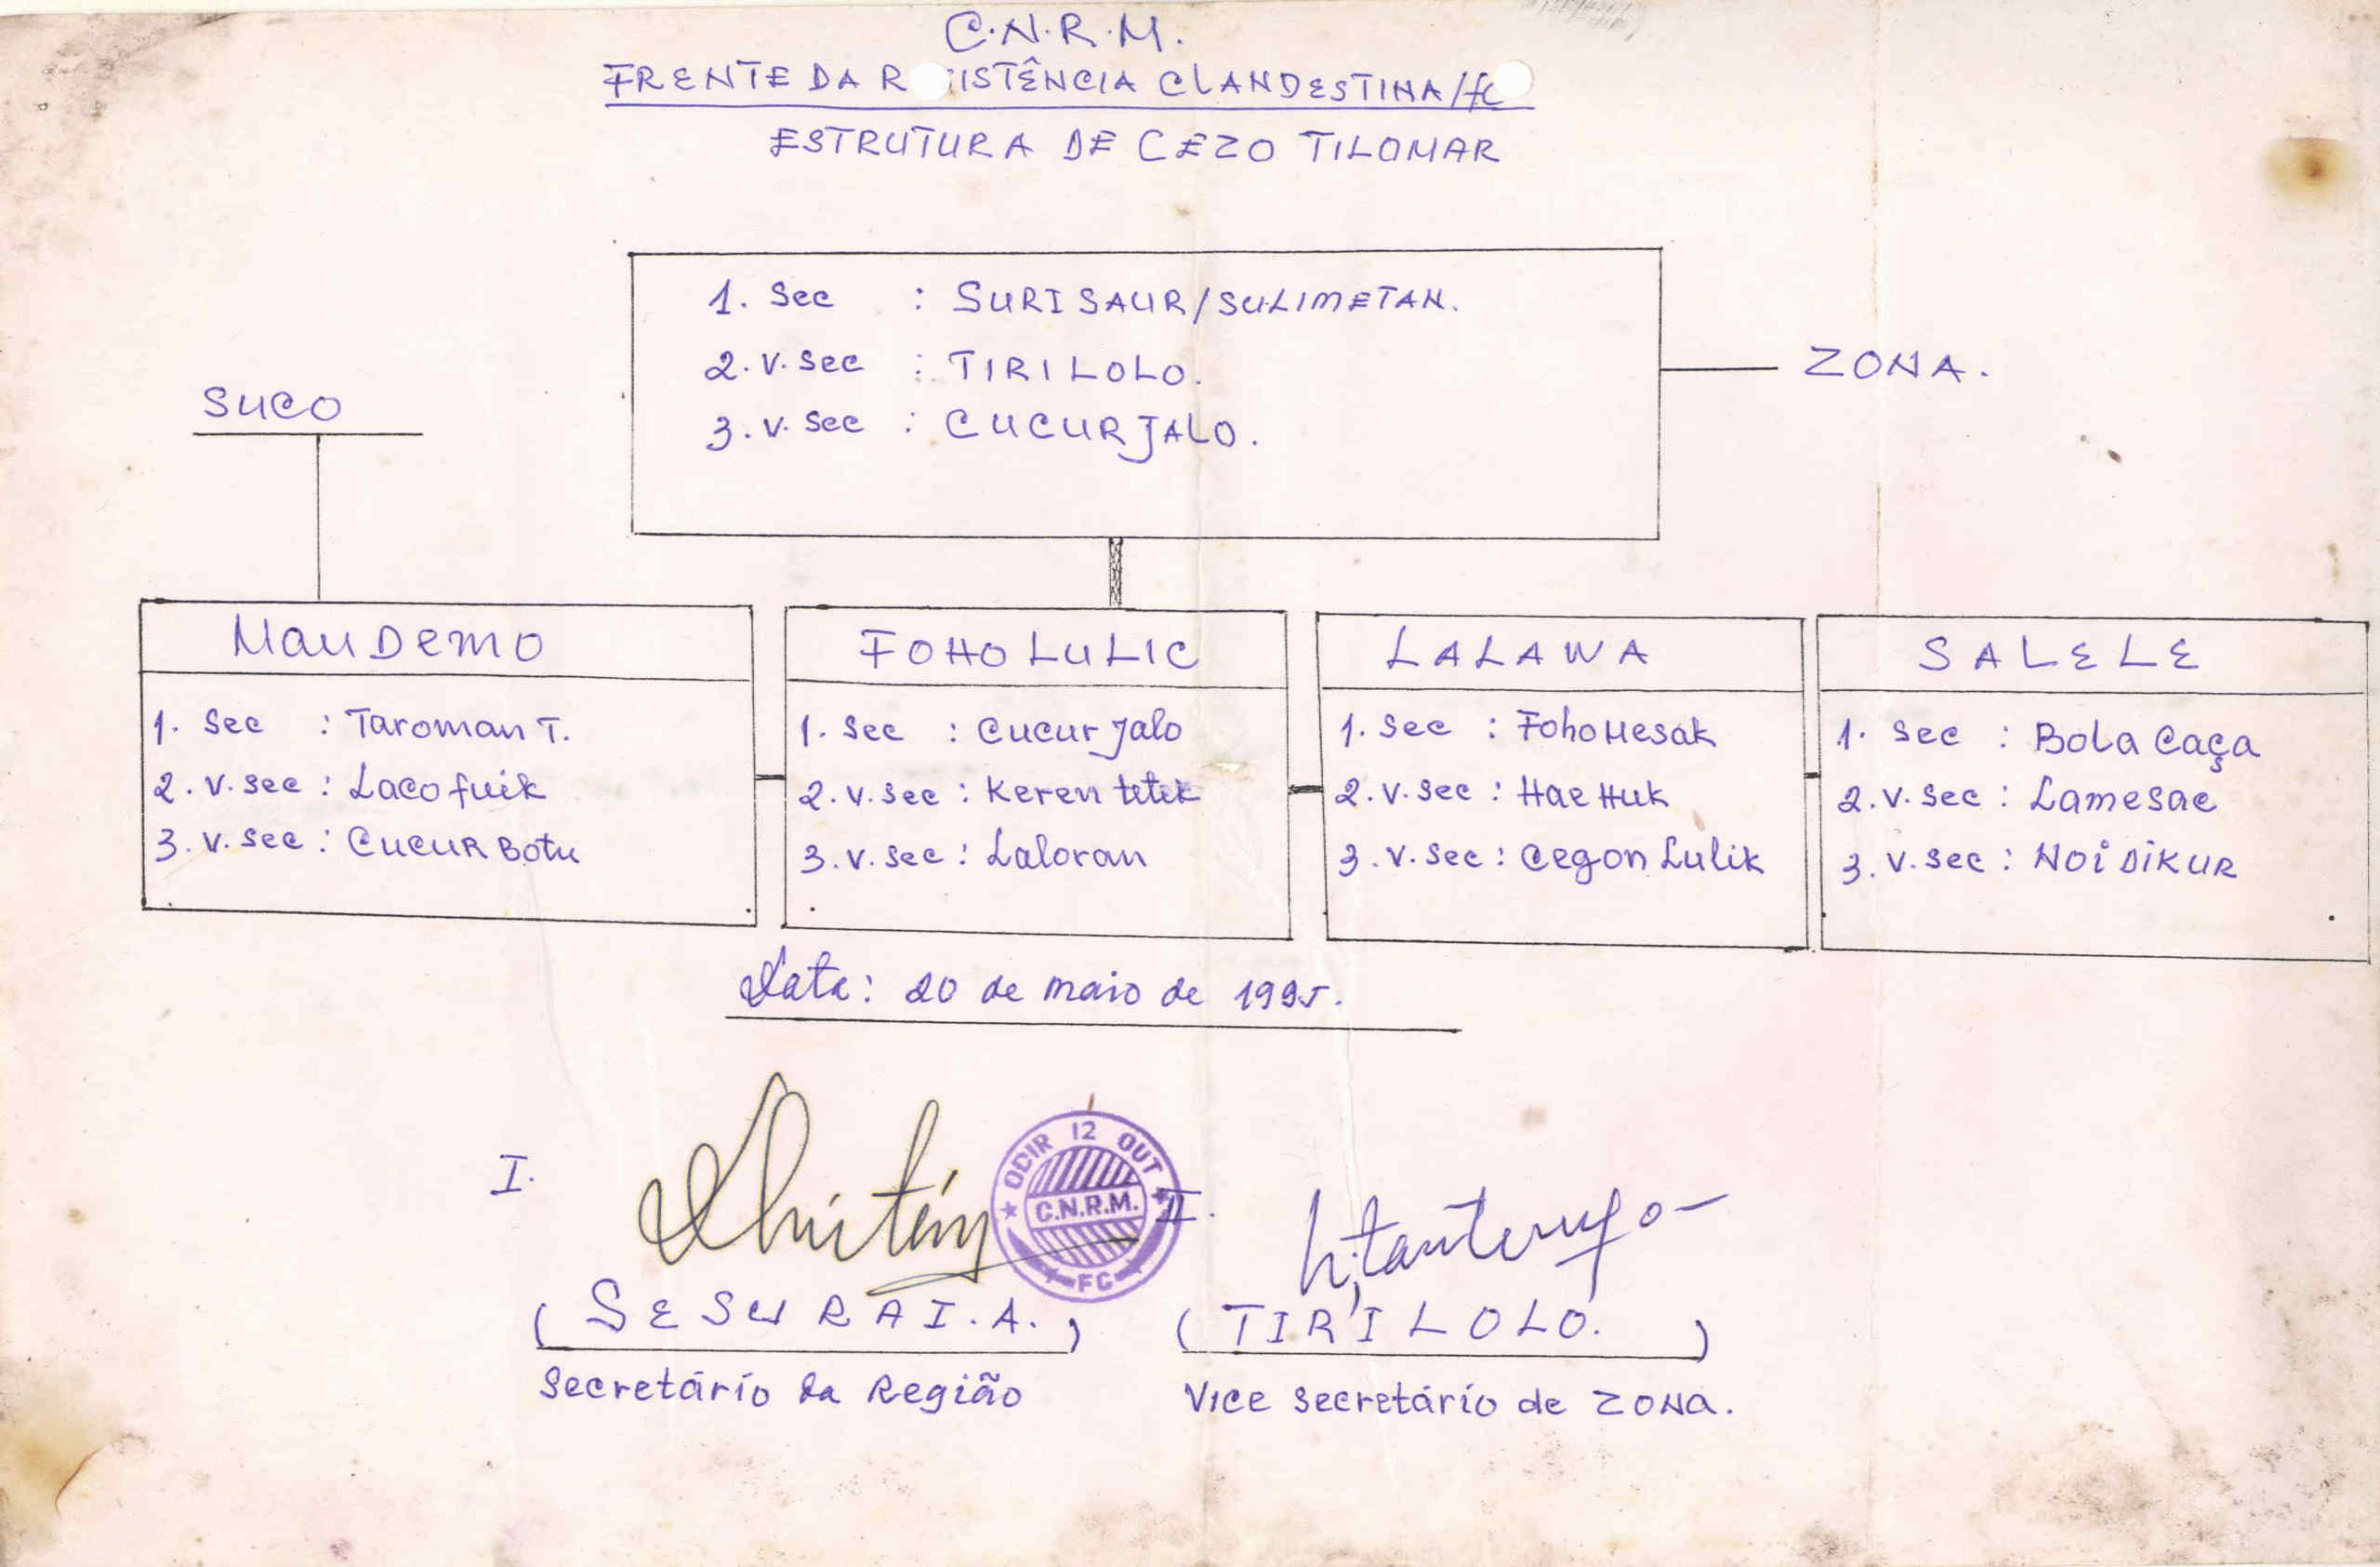 C.N.R.M.
FRENTE DA R ISTÊNCIA CLANDESTINA/FC
ESTRUTURA DE CEZO TILOMAR
1. Sec : SURI SAUR/SULIMETAN.
2. V. Sec : TIRI LOLO.
3. V. Sec : CUCUR JALO.
ZONA.
SUCO
MAUDEMO
1. Sec : Taroman T.
2. V. Sec : Laco fuik
3. V. Sec : CUCUR Botu
FOHO LULIC
1. Sec : Cucur Jalo
2. V. Sec : Keren tetek
3. V. Sec : Laloran
LALAWA
1. Sec : Foho Mesak
2. V. Sec : Hae Huk
3. V. Sec : Cegon Lulik
SALELE
1. Sec : Bola Caça
2. V. Sec : Lamesac
3. V. Sec : NOI DIKUR
Data: 20 de maio de 1995.
I.
ODIR 12 OUT
C.N.R.M.
FC
II.
(SESURAI.A.)
Secretário da Região
(TIRI LOLO.)
Vice Secretário de ZONA.